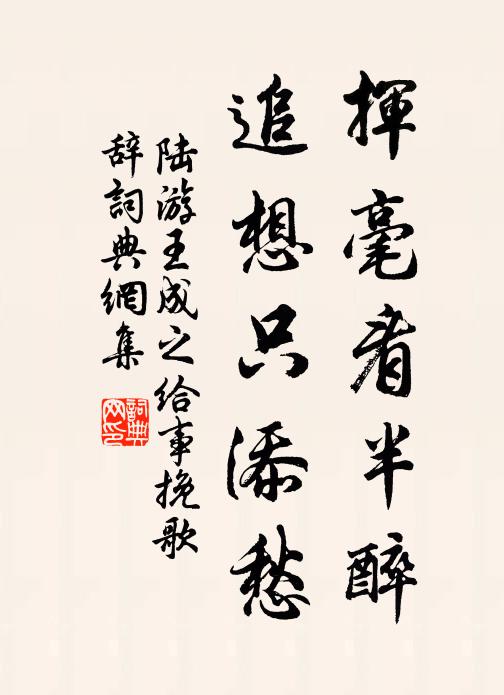 揮毫看半醉
追想只添愁
陆游王成之给事挽歌
辞詞典網集
詞典网印